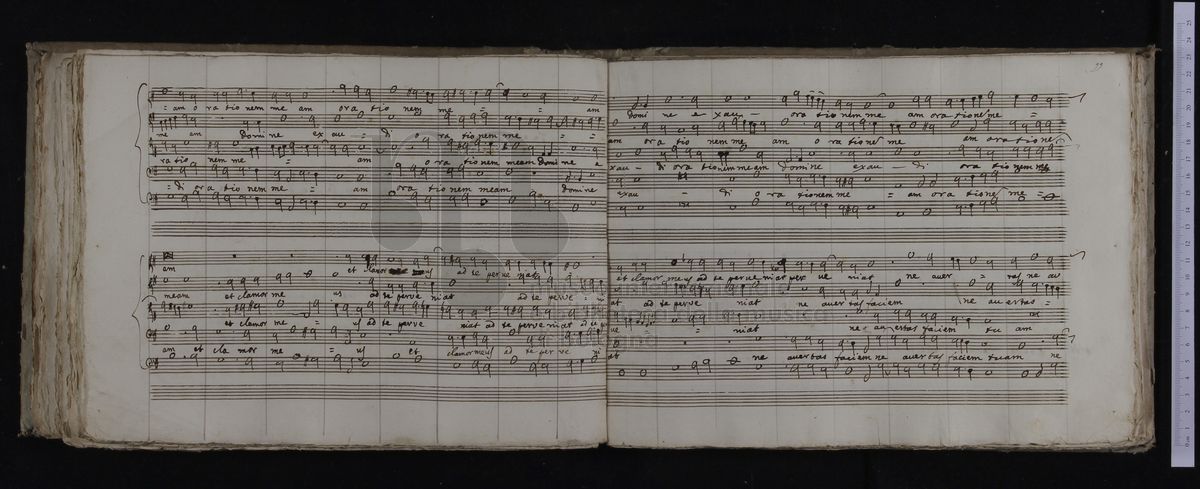 = am o ra tio nem me am ora tio nem me = = am
me am domi ne ex au = di o ra tio nem me = =
ra tio nem me = am o ra tio nem meam domi ne e
= di ora tio nem me = am ora tio nem meam domi ne
am et clamor us ad te per ve niat
meam et clamor me us ad te perve niat ad te perve =
et clamor me = us ad te perve niat ad te perve niat ad te
am et cla mor me = us et clamor meus ad te per ve ni
33
domi ne e xau – ora tio nem me am ora tione me =
am ora tio nem me am o ra tione me am ora tione
xau – di ora tionem meam domi ne exau – di ora tio nem me
exau – di o ra tionem me = am ora tione me =
et clamor meus ad te perve niat per ve niat ne aver = tas ne au
at ad te perve niat ne avertas faciem ne avertas =
ve = niat ne avertas faciem tu am
at ne avertas faciem ne avertas faciem tuam ne